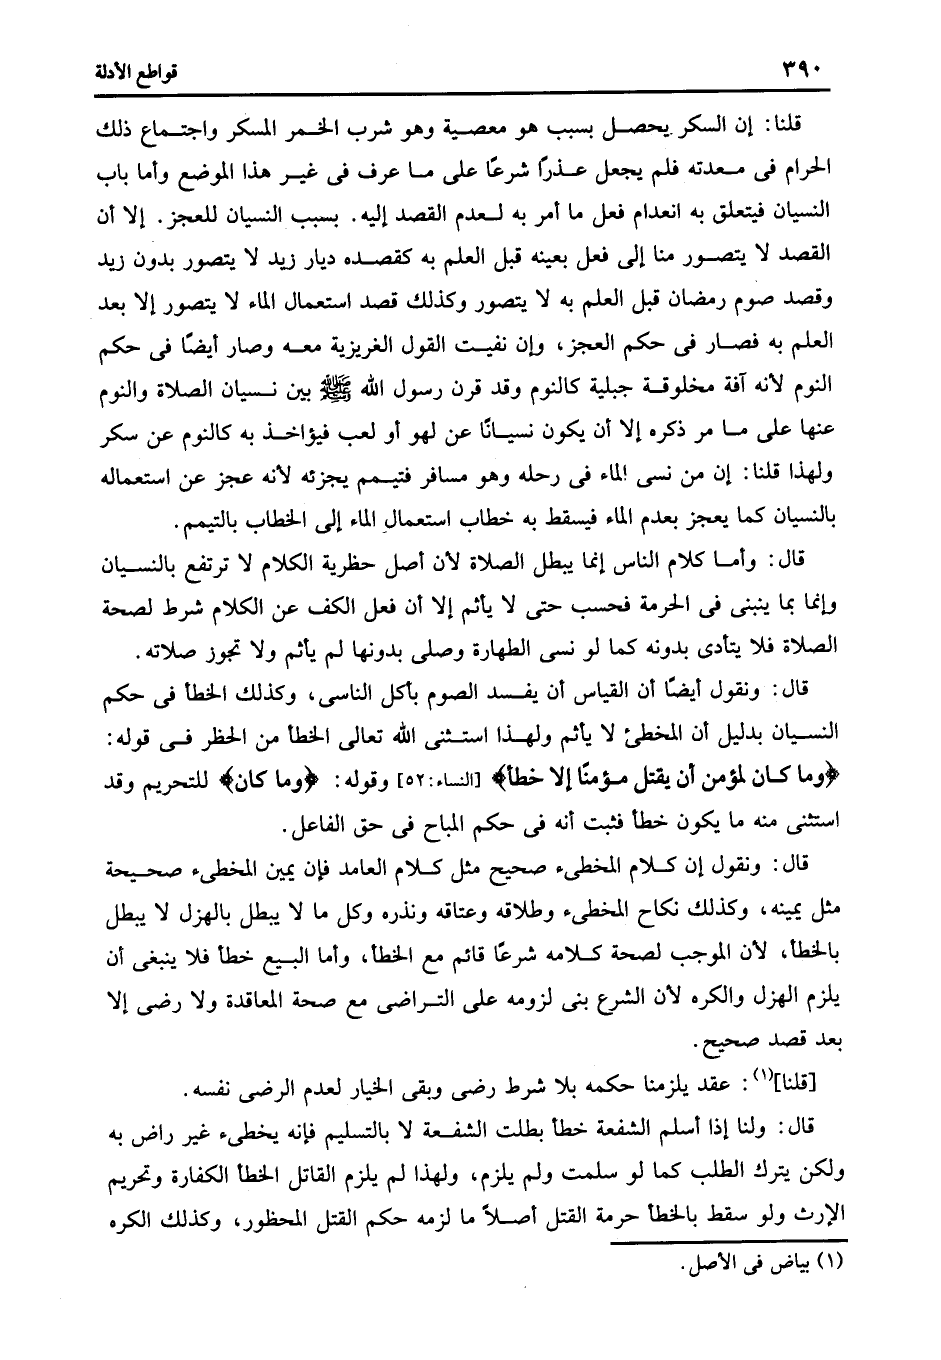 ٣٩٠
قواطع الأدلة
قلنا: إن السكر يحصل بسبب هو معصية وهو شرب الخمر المسكر واجتماع ذلك
الحرام فى معدته فلم يجعل عذرًا شرعًا على ما عرف فى غير هذا الموضع وأما باب
النسيان فيتعلق به انعدام فعل ما أمر به لعدم القصد إليه. بسبب النسيان للعجز. إلا أن
القصد لا يتصور منا إلى فعل بعينه قبل العلم به كقصده ديار زيد لا يتصور بدون زيد
وقصد صوم رمضان قبل العلم به لا يتصور وكذلك قصد استعمال الماء لا يتصور إلا بعد
العلم به فصار فى حكم العجز، وإن نفيت القول الغريزية معه وصار أيضًا فى حكم
النوم لأنه آفة مخلوقة جبلية كالنوم وقد قرن رسول الله ﷺ بين نسيان الصلاة والنوم
عنها على ما مر ذكره إلا أن يكون نسيانًا عن لهو أو لعب فيؤاخذ به كالنوم عن سكر
ولهذا قلنا: إن من نسى الماء فى رحله وهو مسافر فتيمم يجزئه لأنه عجز عن استعماله
بالنسيان كما يعجز بعدم الماء فيسقط به خطاب استعمال الماء إلى الخطاب بالتيمم.
قال: وأما كلام الناس إنما يبطل الصلاة لأن أصل حظرية الكلام لا ترتفع بالنسيان
وإنما بما ينبنى فى الحرمة فحسب حتى لا يأثم إلا أن فعل الكف عن الكلام شرط لصحة
الصلاة فلا يتأدى بدونه كما لو نسى الطهارة وصلى بدونها لم يأثم ولا تجوز صلاته.
قال: ونقول أيضًا أن القياس أن يفسد الصوم بأكل الناسى، وكذلك الخطأ فى حكم
النسيان بدليل أن المخطئ لا يأثم ولهذا استثنى الله تعالى الخطأ من الحظر فى قوله:
﴿وما كان لمؤمن أن يقتل مؤمنًا إلا خطأ﴾ [النساء: ٥٢] وقوله: ﴿وما كان﴾ للتحريم وقد
استثنى منه ما يكون خطأ فثبت أنه فى حكم المباح فى حق الفاعل.
قال: ونقول إن كلام المخطىء صحيح مثل كلام العامد فإن يمين المخطىء صحيحة
مثل يمينه، وكذلك نكاح المخطىء وطلاقه وعتاقه ونذره وكل ما لا يبطل بالهزل لا يبطل
بالخطأ، لأن الموجب لصحة كلامه شرعًا قائم مع الخطأ، وأما البيع خطأ فلا ينبغى أن
يلزم الهزل والكره لأن الشرع بنى لزومه على التراضى مع صحة المعاقدة ولا رضى إلا
بعد قصد صحيح.
[قلنا](١): عقد يلزمنا حكمه بلا شرط رضى وبقى الخيار لعدم الرضى نفسه.
قال: ولنا إذا أسلم الشفعة خطأ بطلت الشفعة لا بالتسليم فإنه يخطىء غير راض به
ولكن يترك الطلب كما لو سلمت ولم يلزم، ولهذا لم يلزم القاتل الخطأ الكفارة وتحريم
الإرث ولو سقط بالخطأ حرمة القتل أصلاً ما لزمه حكم القتل المحظور، وكذلك الكره
(١) بياض فى الأصل.